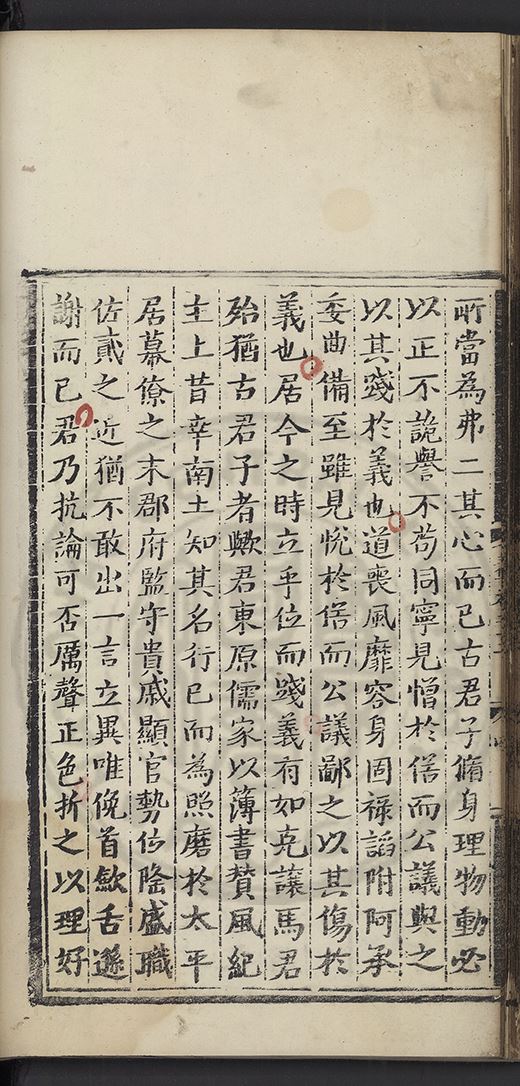 所當為弗二其心而已古君子脩身理物動必
以正不詭譽不苟同寧見憎於俗而公議與之
以其踐於義也道喪風靡容身固祿諂附阿承
委曲備至雖見悅於俗而公議鄙之以其傷於
義也居今之時立乎位而踐義有如克讓馬君
殆猶古君子者歟君東原儒家以簿書贊風紀
主上昔幸南土知其名行已而為照磨於太平
居幕僚之末郡府監守貴戚顯官勢位隆盛職
佐貳之近猶不敢出一言立異唯俛首歛舌遜
謝而已君乃抗論可否厲聲正色折之以理好